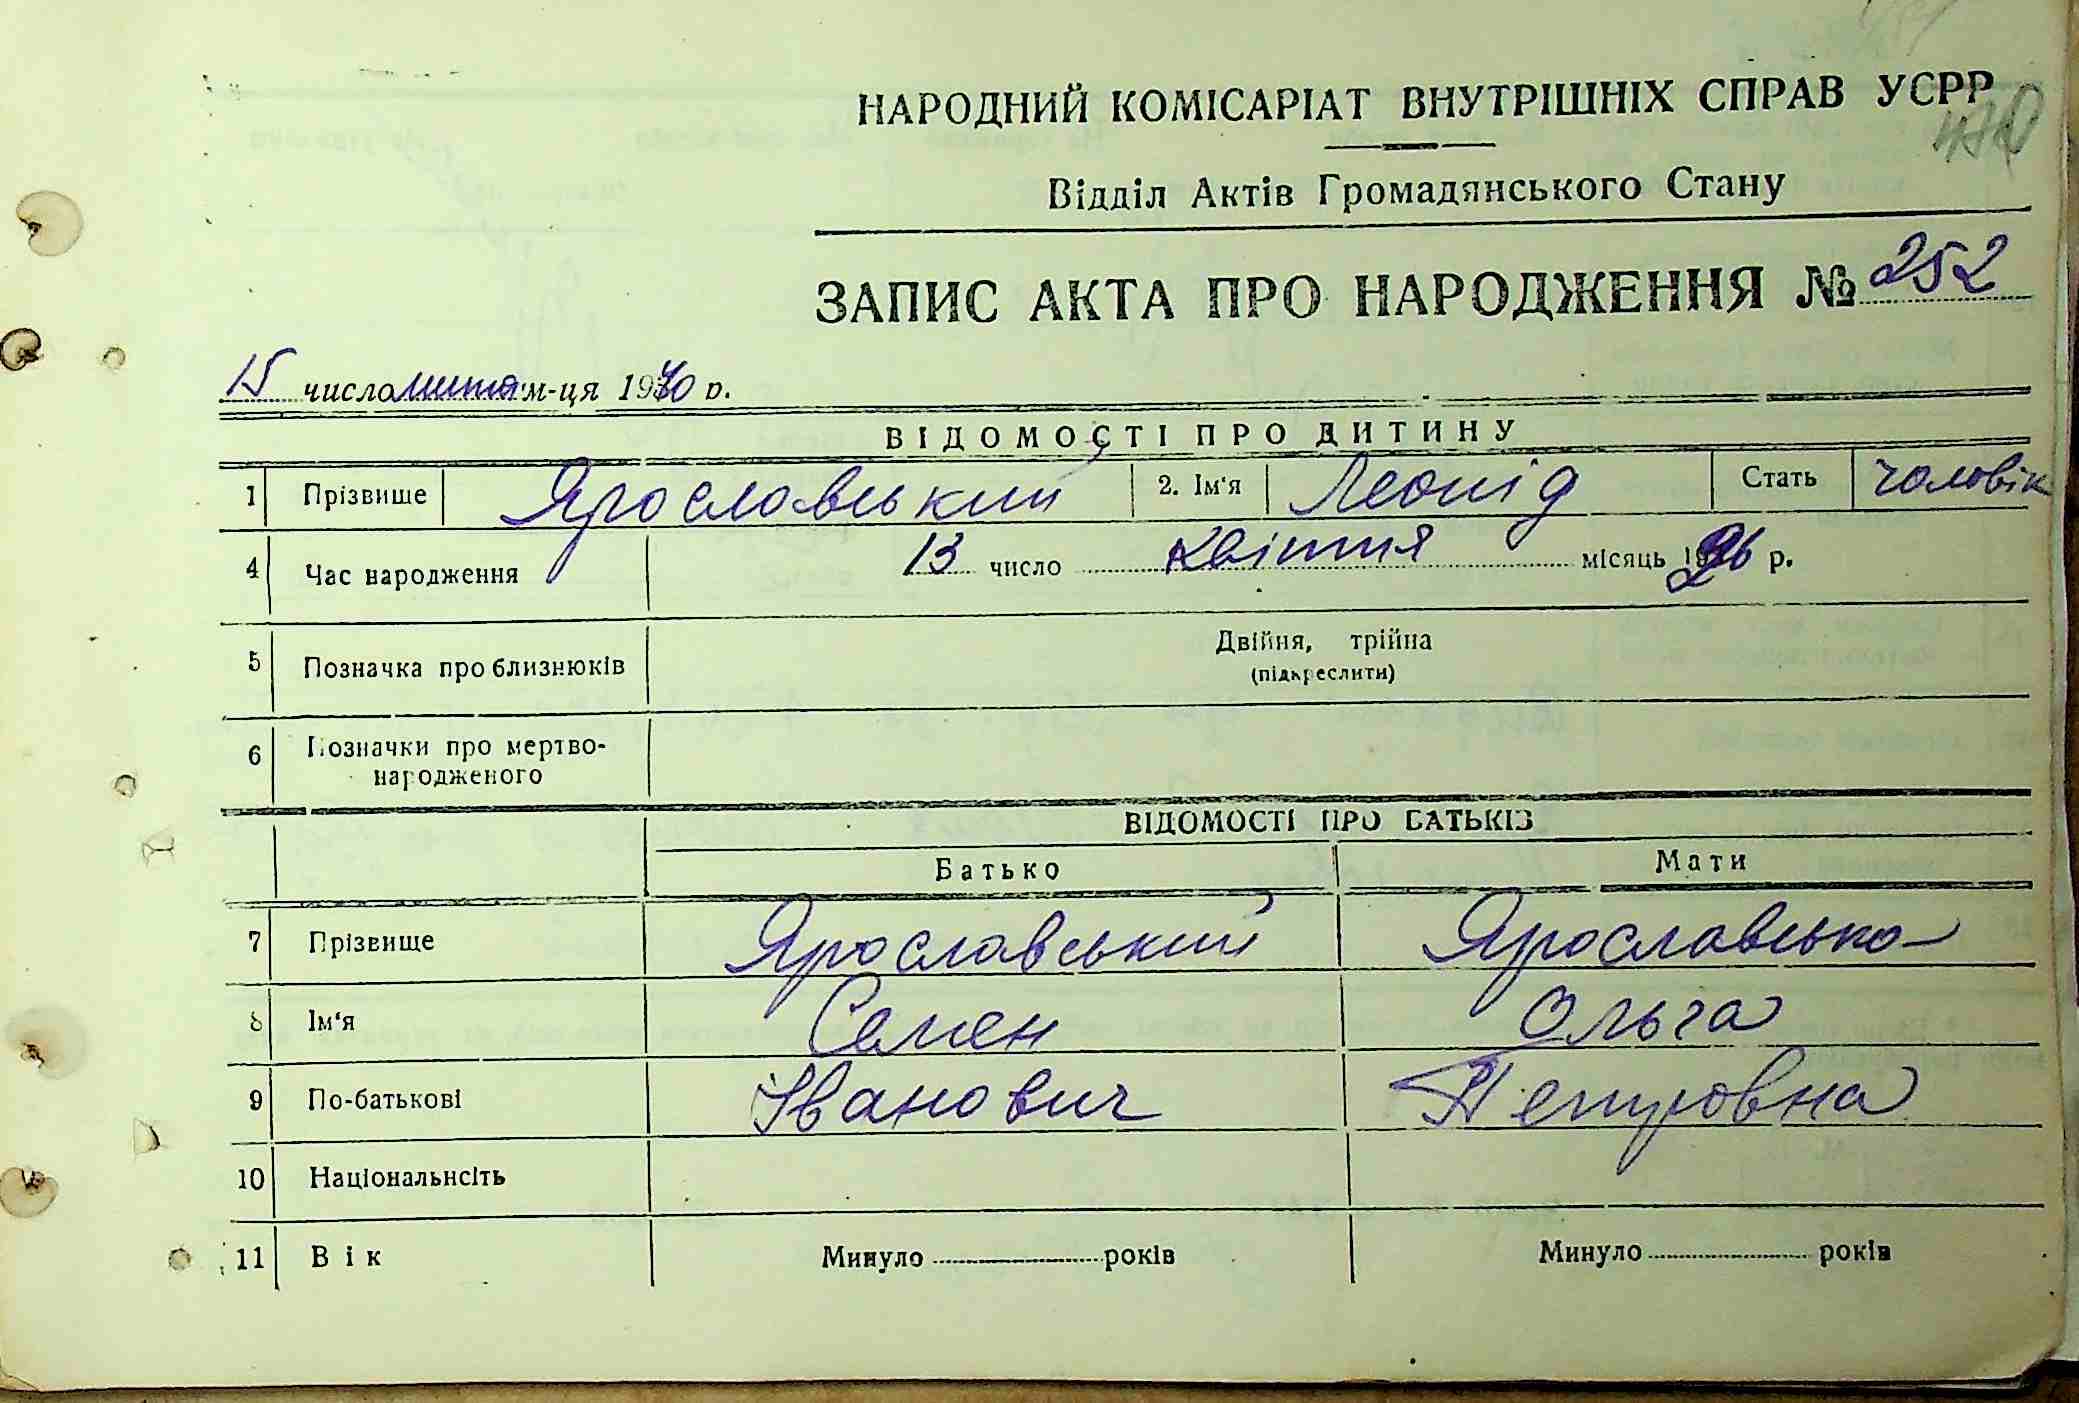 НАРОДНИЙ КОМІСАРІАТ ВНУТРІШНІХ СПРАВ УСРР
Відділ Актів Громадянського Стану
ЗАПИС АКТА ПРО НАРОДЖЕННЯ № 252
15 число липня м-ця 1940 р.
ВІДОМОСТІ ПРО ДИТИНУ
1 Прізвище Ярославський 2. Ім'я Леонід Стать чоловік
4 Час народження 13 число квітня місяць 1926 р.
5 Позначка про близнюків Двійня, трійна
(підкреслити)
6 Позначки про мертво-
народженого
ВІДОМОСТІ ПРО БАТЬКІВ
Батько Мати
7 Прізвище Ярославський Ярославська
8 Ім'я Семен Ольга
9 По-батькові Іванович Петровна
10 Національнсіть
11 Вік Минуло років Минуло років